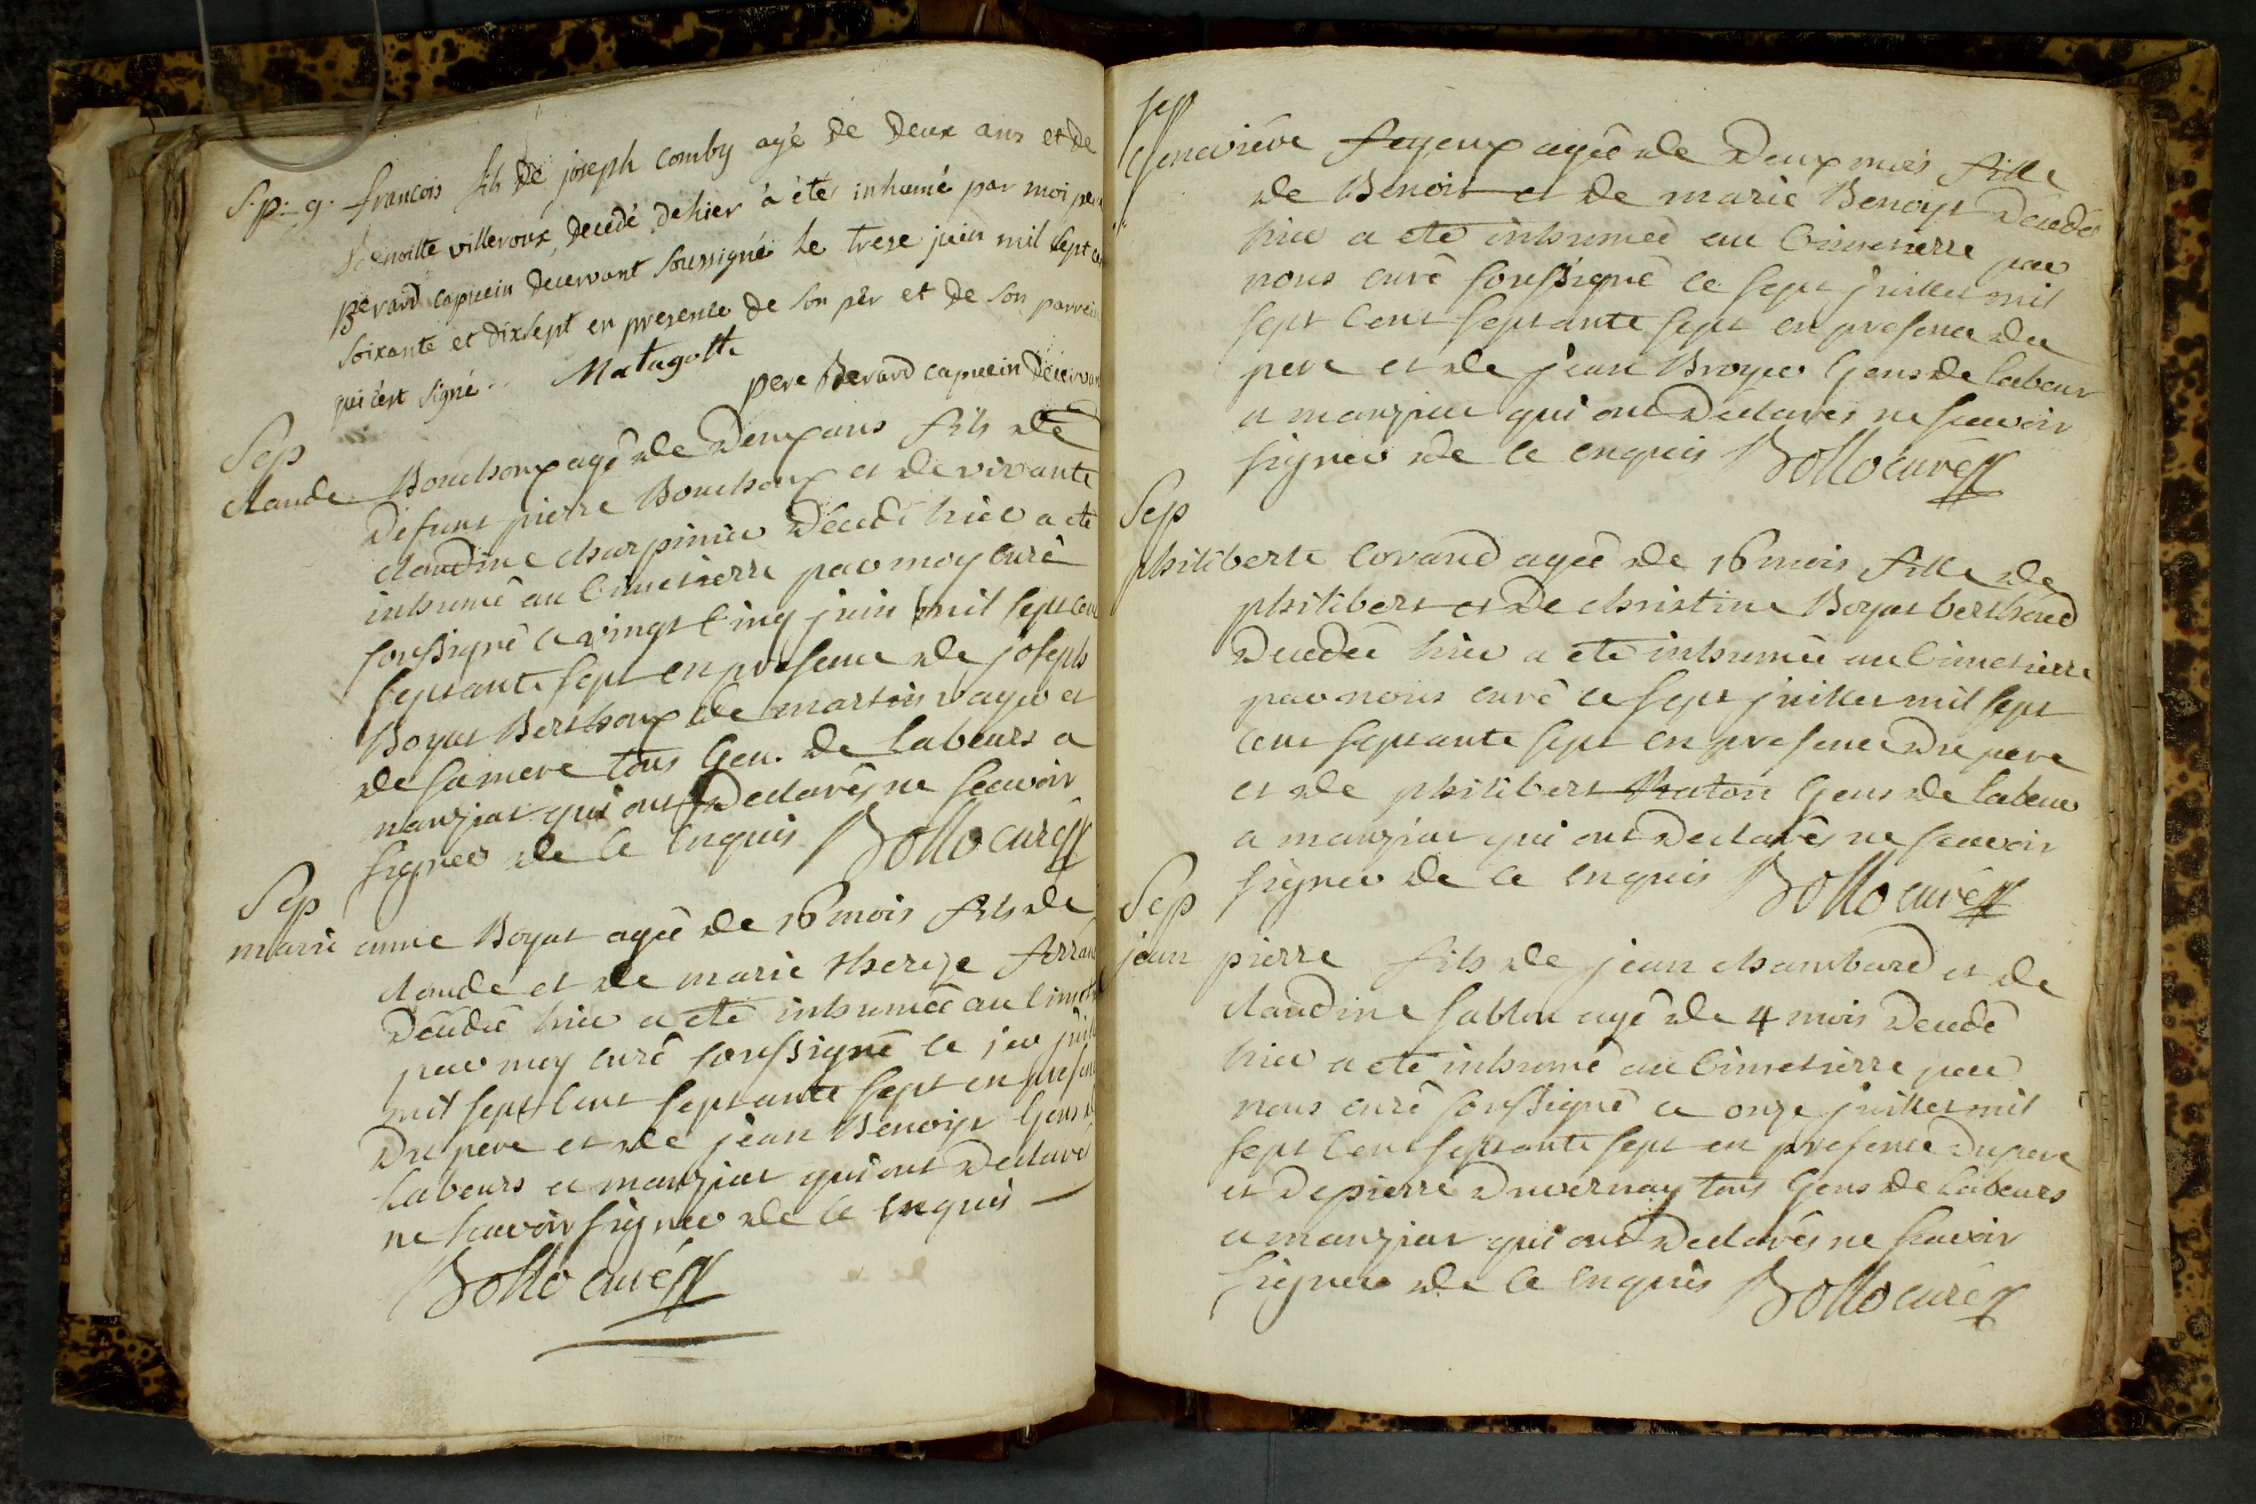 S.p:g. francois fils de joseph comby agé de deux ans et de
benoitte villeroux, decedé dehier à été inhumé par moi pere
Berard capucin decervant soussigné le trese juin mil sept cen
soixante et dixsept en presence de son pèr et de son parrein
qui cest signé.. Matagotte
pere Berard capucin decervan
Sep
claude Bouchoux agé de Deux ans fils de
Defunt pierre Bouchoux et de vivante
claudine charpinier Décedé hier a eté
inhumé au Cimetierre par moy curé
soussigné ce vingt cinq juin mil sept cen
septante sept en presence de joseph
Boyat Berthoux de martin vayer et
de sa mere tous Gen. de Labeurs a
manziat qui ont Declarés ne scavoir
signer de ce Enquis Bollo curé
Sep
marie anne Boyat agée de 16 mois fils de
claude et de marie thereze ferran
Décedée hier a eté inhumée au Cimet
par moy curé soussigné ce 1er juill
mil sept Cent septante sept en presen
Du pere et de jean Benoist Gens d
Labeurs a manziat qui ont Declaré
ne scavoir signer de ce enquis
Bollo curé
sep
Genevieve feyeux agée de Deux mois fille
de Benoit et de marie Benoist Decedée
hier a eté inhumée au Cimetierre par
nous curé soussigné ce sept juillet mil
sept Cent septante sept en presence du
pere et de jean Broyer Gens de Labeur
a manziat qui ont Declarés ne scavoir
signer de ce enquis Bollo curé
Sep
philiberte Corand agée de 16 mois fille de
philibert et De christine Boyat berthoud
Decedée hier a eté inhumée au Cimetierre
par nous curé ce sept juillet mil sept
Cent septante sept en presence Du pere
et de philibert Raton Gens de Labeur
a manziat qui ont Declarés ne scavoir
signer de ce enquis Bollo curé
Sep
jean pierre fils de jean chambard et de
claudine sablon agé de 4 mois Decedé
hier a eté inhumé au Cimetierre par
nous curé soussigné ce onze juillet mil
sept Cent septante sept en presence Du pere
et De pierre Duvernay tous Gens de Labeurs
a manziat qui ont Declarés ne scavoir
signer de ce enquis Bollo curé